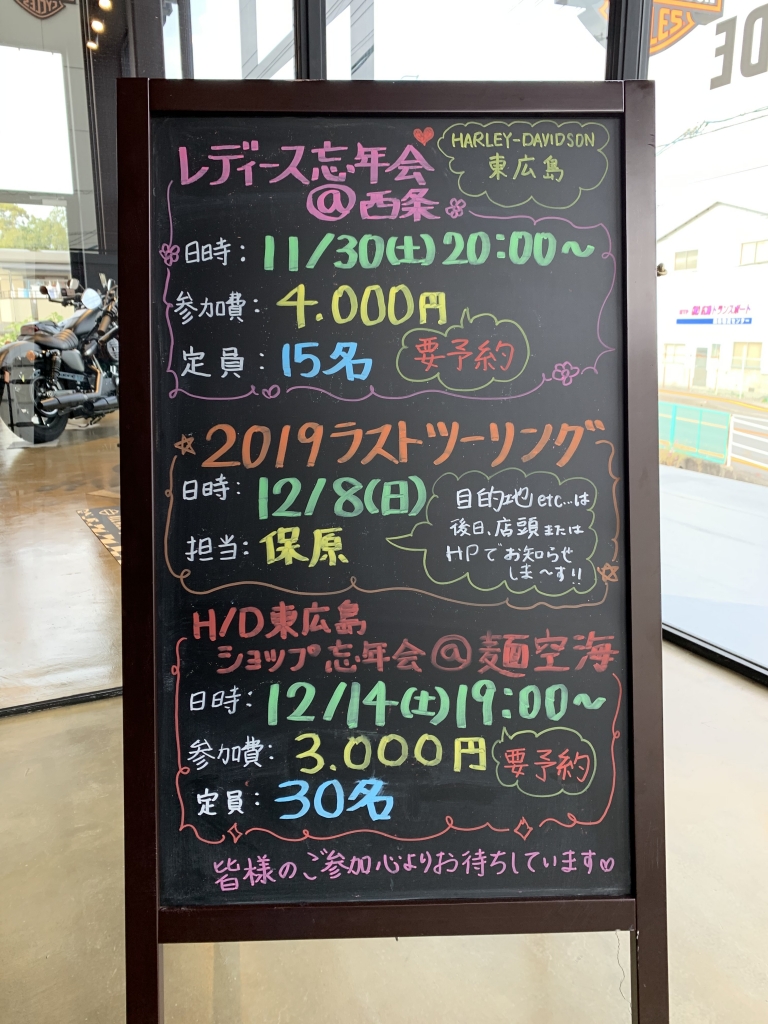 レディース忘年会
@西条
HARLEY-DAVIDSON
東広島
日時: 11/30(土) 20:00〜
参加費: 4.000円
定員: 15名
要予約
2019ラストツーリング
日時: 12/8(日)
担当: 保原
目的地etc...は
後日、店頭または
HPでお知らせ
しま〜す!!
H/D東広島
ショップ忘年会@麺空海
日時: 12/14(土)19:00〜
参加費: 3.000円
要予約
定員: 30名
皆様のご参加心よりお待ちしています♡
トランスポート